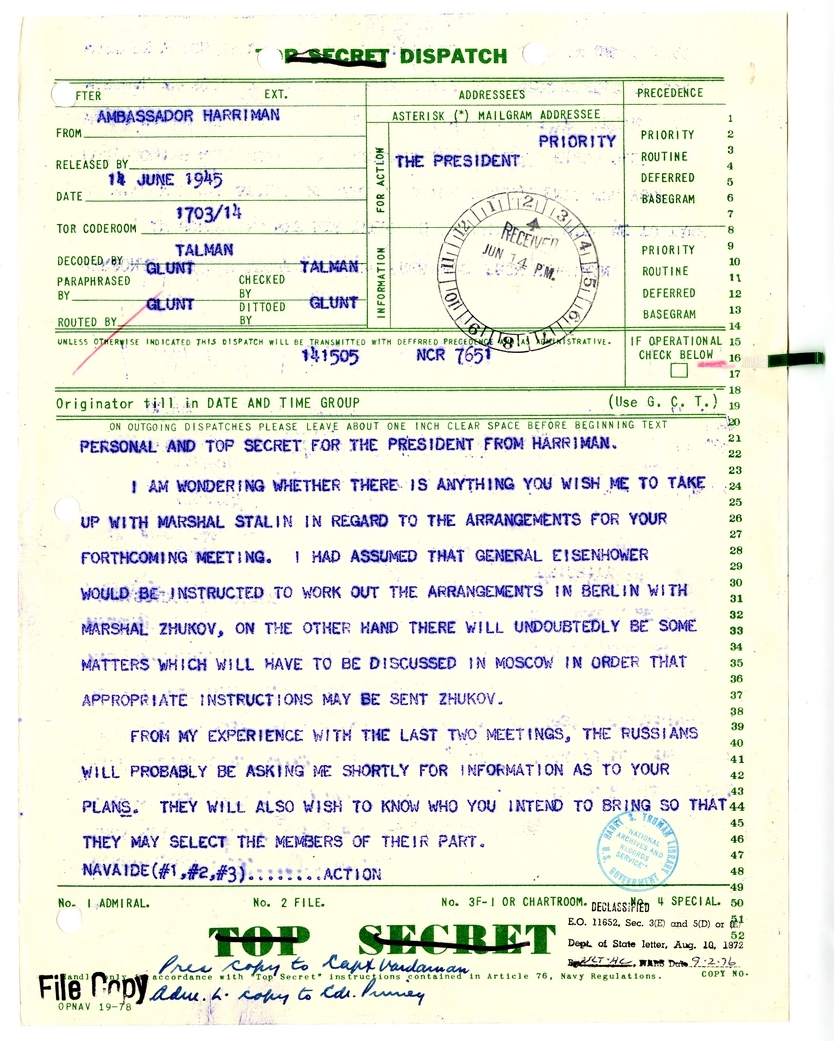 TOP SECRET DISPATCH
FTER EXT. ADDRESSEES PRECEDENCE
AMBASSADOR HARRIMAN
FROM
ASTERISK (*) MAILGRAM ADDRESSEE
RELEASED BY
14 JUNE 1945
DATE
1703/14
TOR CODEROOM
TALMAN
DECODED BY
GLUNT TALMAN
PARAPHRASED BY CHECKED BY
GLUNT GLUNT
ROUTED BY DITTOED BY
FOR ACTION
PRIORITY
THE PRESIDENT
INFORMATION
RECEIVED
JUN 14 P.M.
12 1 2 3 4 5 6 7 8 9 10 11
PRIORITY
ROUTINE
DEFERRED
BASEGRAM
PRIORITY
ROUTINE
DEFERRED
BASEGRAM
UNLESS OTHERWISE INDICATED THIS DISPATCH WILL BE TRANSMITTED WITH DEFERRED PRECEDENCE AND AS ADMINISTRATIVE.
141505 NCR 7651
IF OPERATIONAL
CHECK BELOW
Originator fill in DATE AND TIME GROUP (Use G. C. T.)
ON OUTGOING DISPATCHES PLEASE LEAVE ABOUT ONE INCH CLEAR SPACE BEFORE BEGINNING TEXT
PERSONAL AND TOP SECRET FOR THE PRESIDENT FROM HARRIMAN.
I AM WONDERING WHETHER THERE IS ANYTHING YOU WISH ME TO TAKE
UP WITH MARSHAL STALIN IN REGARD TO THE ARRANGEMENTS FOR YOUR
FORTHCOMING MEETING. I HAD ASSUMED THAT GENERAL EISENHOWER
WOULD BE INSTRUCTED TO WORK OUT THE ARRANGEMENTS IN BERLIN WITH
MARSHAL ZHUKOV, ON THE OTHER HAND THERE WILL UNDOUBTEDLY BE SOME
MATTERS WHICH WILL HAVE TO BE DISCUSSED IN MOSCOW IN ORDER THAT
APPROPRIATE INSTRUCTIONS MAY BE SENT ZHUKOV.
FROM MY EXPERIENCE WITH THE LAST TWO MEETINGS, THE RUSSIANS
WILL PROBABLY BE ASKING ME SHORTLY FOR INFORMATION AS TO YOUR
PLANS. THEY WILL ALSO WISH TO KNOW WHO YOU INTEND TO BRING SO THAT
THEY MAY SELECT THE MEMBERS OF THEIR PART.
NAVAIDE(#1,#2,#3)........ACTION
1
2
3
4
5
6
7
8
9
10
11
12
13
14
15
16
17
18
19
20
21
22
23
24
25
26
27
28
29
30
31
32
33
34
35
36
37
38
39
40
41
42
43
44
45
46
47
48
49
50
51
52
HARRY S. TRUMAN LIBRARY
NATIONAL
ARCHIVES AND
RECORDS
SERVICE
U.S. GOVERNMENT
No. 1 ADMIRAL. No. 2 FILE. No. 3F-1 OR CHARTROOM. No. 4 SPECIAL.
DECLASSIFIED
E.O. 11652, Sec. 3(E) and 5(D) or (E)
Dept. of State letter, Aug. 10, 1972
By NLT-HC, NARS Date 9-2-76
TOP SECRET
Pres copy to Capt Vardaman
Handle only in accordance with "Top Secret" instructions contained in Article 76, Navy Regulations. COPY NO.
File Copy
Adm. L. copy to Cdr.
OPNAV 19-78